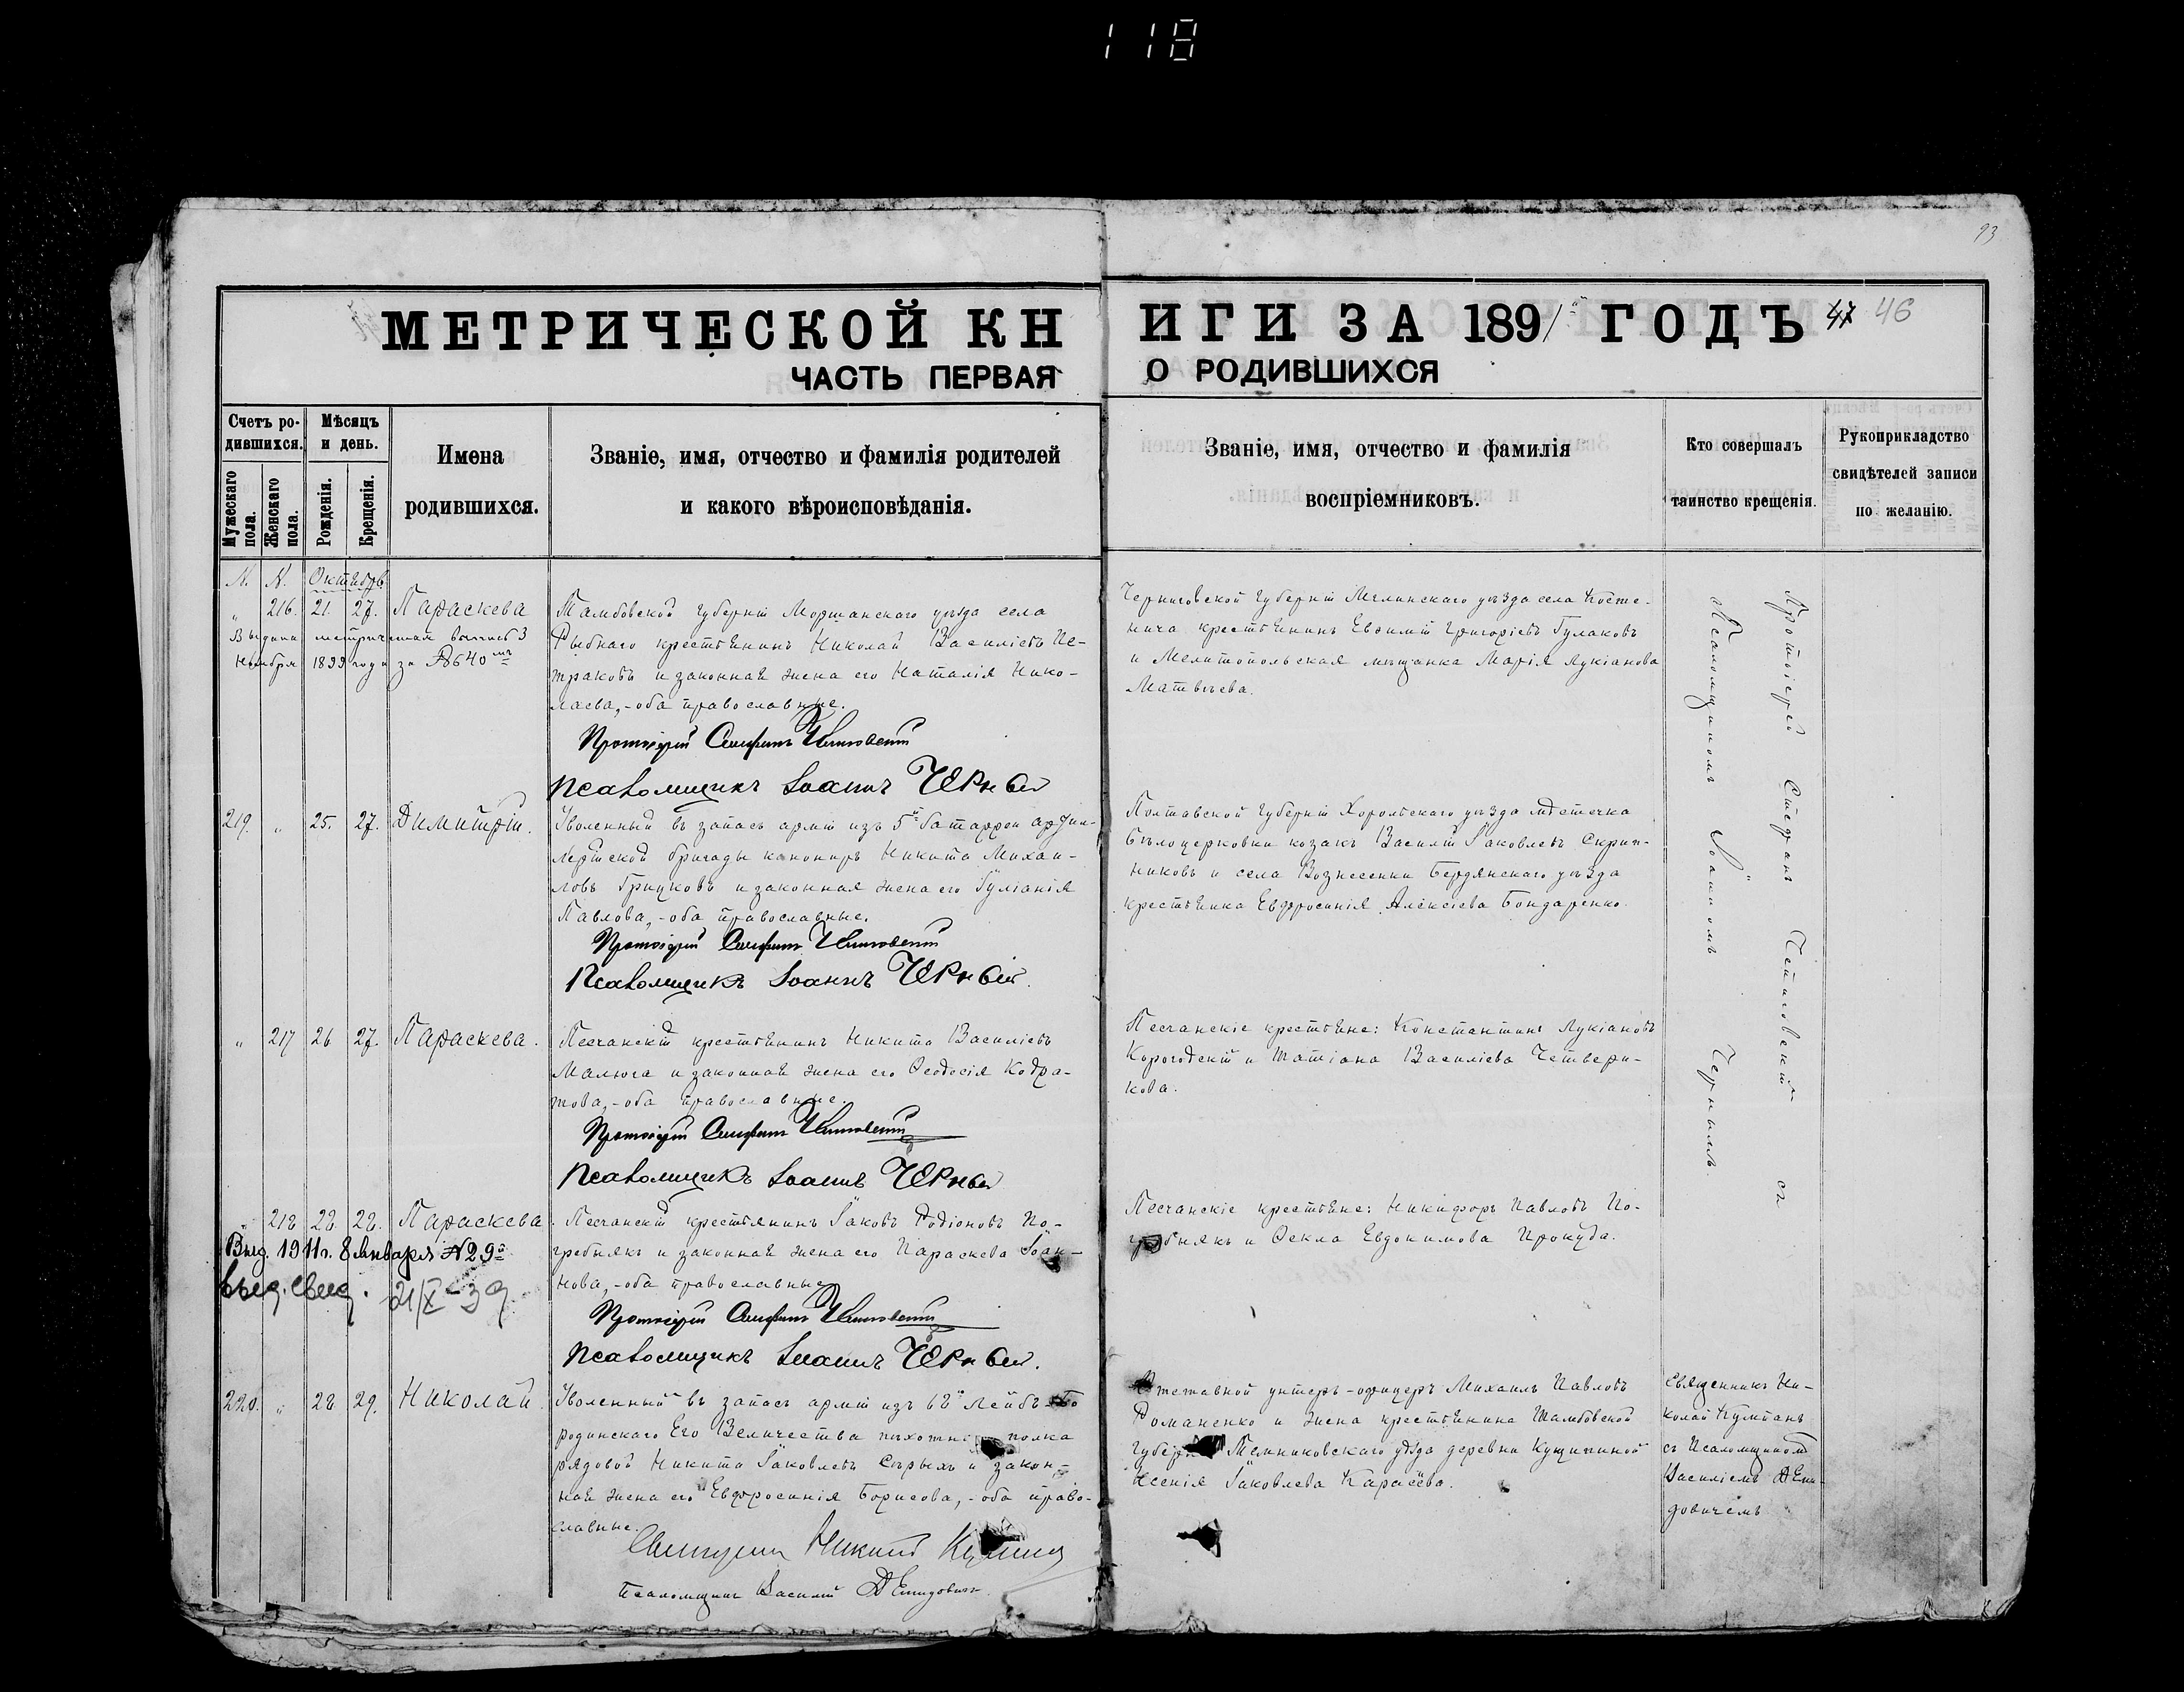 118
93
МЕТРИЧЕСКОЙ КН
ИГИ ЗА 1891й ГОДЪ 47 46
ЧАСТЬ ПЕРВАЯ
О РОДИВШИХСЯ
Счетъ ро-
дившихся.
Мужескаго пола.
Женскаго пола.
Мѣсяцъ
и день.
Рожденія.
Крещенія.
Имена
родившихся.
Званіе, имя, отчество и фамилія родителей
и какого вѣроисповѣданія.
Званіе, имя, отчество и фамилія
воспріемниковъ.
Кто совершалъ
таинство крещенія.
Рукоприкладство
свидѣтелей записи
по желанію.
N. N. Октябрь
„ 216. 21. 27. Параскева
Выдана метрическая выпись 3
Ноября 1899 года за №640мъ
Тамбовской губерніи Моршанскаго уѣзда села
Рыбнаго крестьянинъ Николай Василіевъ Пе-
траковъ и законная жена его Наталія Нико-
лаева,-оба православные.
Протоіерей Стефанъ
Псаломщикъ Іоаннъ Черный
Черниговской губерніи Мглинскаго уѣзда села Косте-
нича крестьянинъ Евѳимій Григоріевъ Гулаковъ
и Мелитопольская мѣщанка Марія Лукіанова
Матвѣева.
219. „ 25. 27. Димитрій.
Уволенный въ запасъ арміи изъ 5й батарреи артил-
лерійской бригады канониръ Никита Михаи-
ловъ Грицковъ и законная жена его Іуліанія
Павлова,-оба православные.
Протоіерей Стефанъ
Псаломщикъ Іоаннъ Черный.
Полтавской губерніи Хорольскаго уѣзда мѣстечка
Бѣлоцерковки козакъ Василій Іаковлевъ Скрип-
никовъ и села Вознесенки Бердянскаго уѣзда
крестьянка Евфросинія Алексіева Бондаренко.
„ 217 26 27. Параскева.
Песчанскій крестьянинъ Никита Василіевъ
Малюга и законная жена его Ѳеодосія Кодра-
това,-оба православные.
Протоіерей Стефанъ
Псаломщикъ Іоаннъ Черный
Песчанскіе крестьяне: Константинъ Лукіановъ
Корогодскій и Татіана Василіева Четвери-
кова.
„ 218 22. 28. Параскева.
Выд. 1911г. 8 Января №29й
выд. свид. 21/X-39.
Песчанскій крестьянинъ Іаковъ Родіоновъ По-
гребнякъ и законная жена его Параскева Іоан-
нова,-оба православные
Протоіерей Стефанъ
Псаломщикъ Іоаннъ Черный.
Песчанскіе крестьяне: Никифоръ Павловъ По-
гребнякъ и Ѳекла Евдокимова Прокуда.
Протоіерей Стефанъ съ
Псаломщикомъ Іоанномъ Чернымъ.
220. „ 28 29. Николай.
Уволенный въ запасъ арміи изъ 68й Лейбъ-Бо
родинскаго Его Величества пѣхотнаго полка
рядовой Никита Іаковлевъ Сѣрыхъ и закон-
ная жена его Евфросинія Борисова,-оба право-
славные.
Священникъ
Псаломщикъ Василій Демидовичъ.
Отставной унтеръ-офицеръ Михаилъ Павловъ
Романенко и жена крестьянина Тамбовской
губерніи Темниковскаго уѣзда деревни
Ксенія Іаковлева Карасёва.
Священникъ Ни-
колай
съ Псаломщикомъ
Василіемъ Деми-
довичемъ